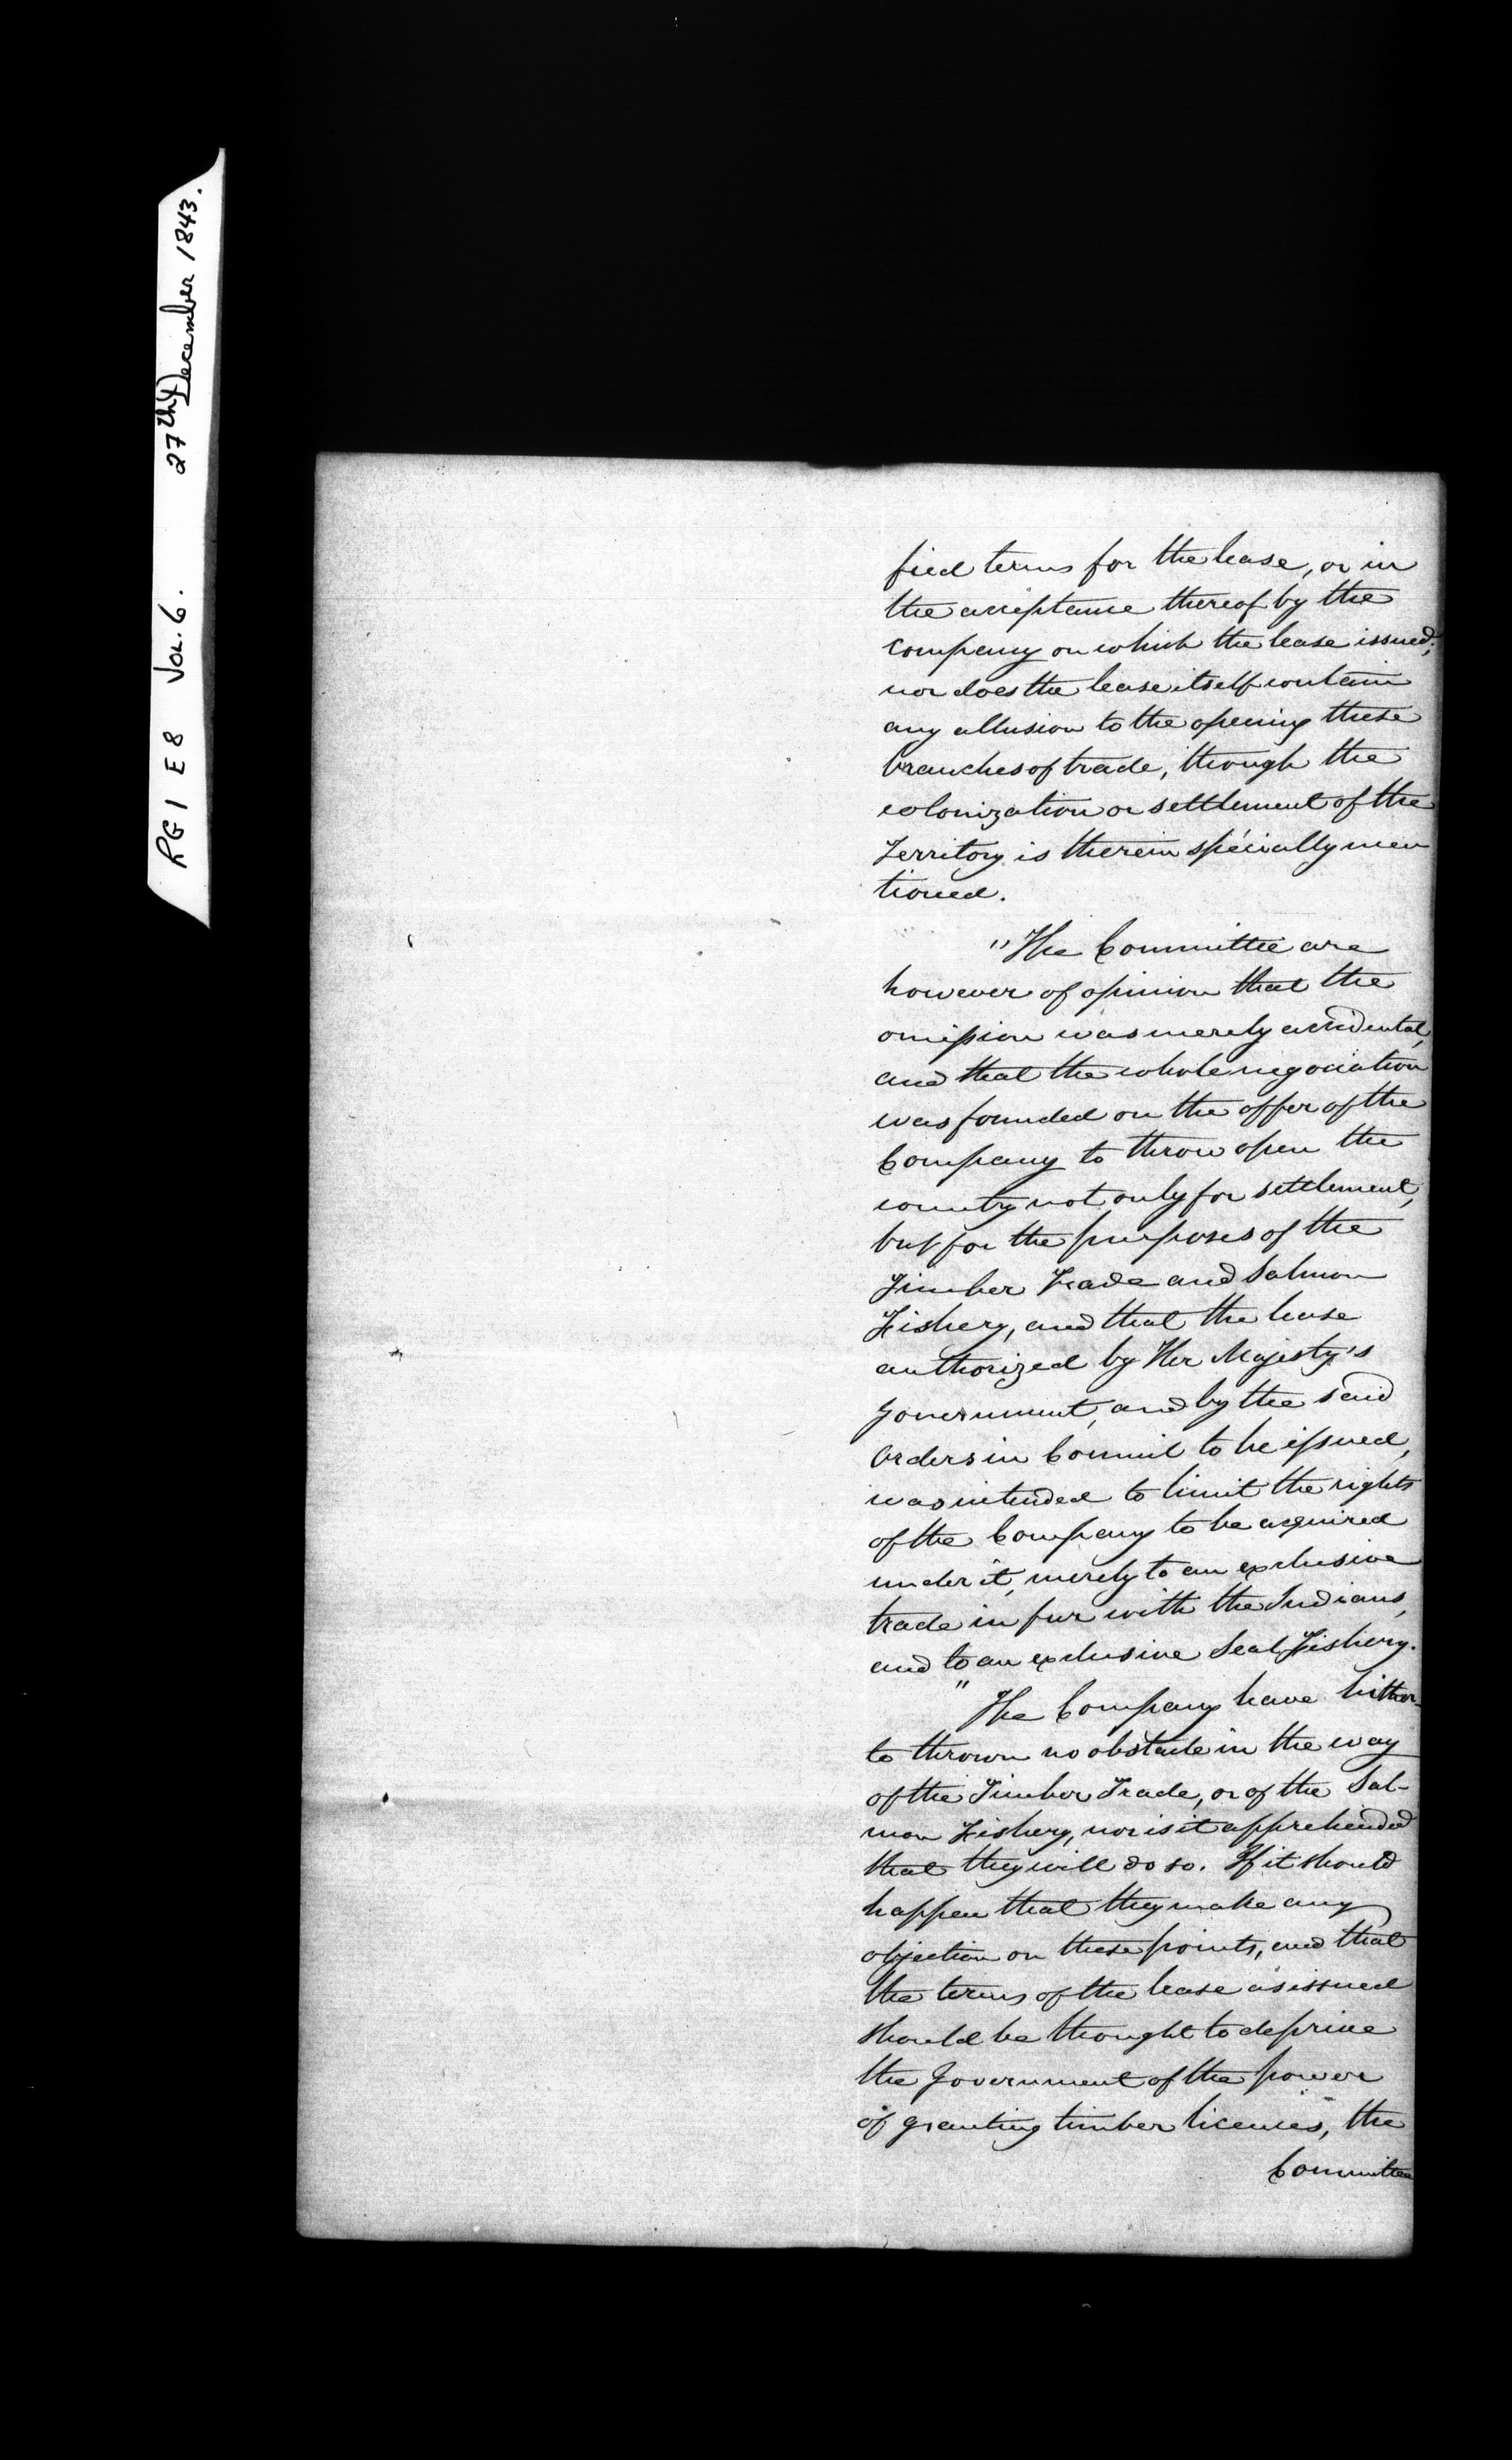 RG1 E8 Vol. 6. 27th December 1843.
fied terms for the lease, or in
the acceptance thereof by the
Company on which the lease issued;
nor does the lease itself contain
any allusion to the opening these
branches of trade, though the
colonization or settlement of the
Territory is therein specially men
tioned.
"The Committee are
however of opinion that the
omission was merely accidental,
and that the whole negociation
was founded on the offer of the
Company to throw open the
country not only for settlement,
but for the purposes of the
Timber Trade and Salmon
Fishery, and that the lease
authorized by Her Majesty's
Government, and by the said
Orders in Council to be issued,
was intended to limit the rights
of the Company to be acquired
under it, merely to an exclusive
trade in fur with the Indians,
and to an exclusive Seal Fishery.
"The Company have hither-
to thrown no obstacle in the way
of the Timber Trade, or of the Sal-
mon Fishery, nor is it apprehended
that they will do so. If it should
happen that they make any
objection on these points, and that
the terms of the lease as issued
should be thought to deprive
the Government of the power
of granting timber licenses, the
Committee